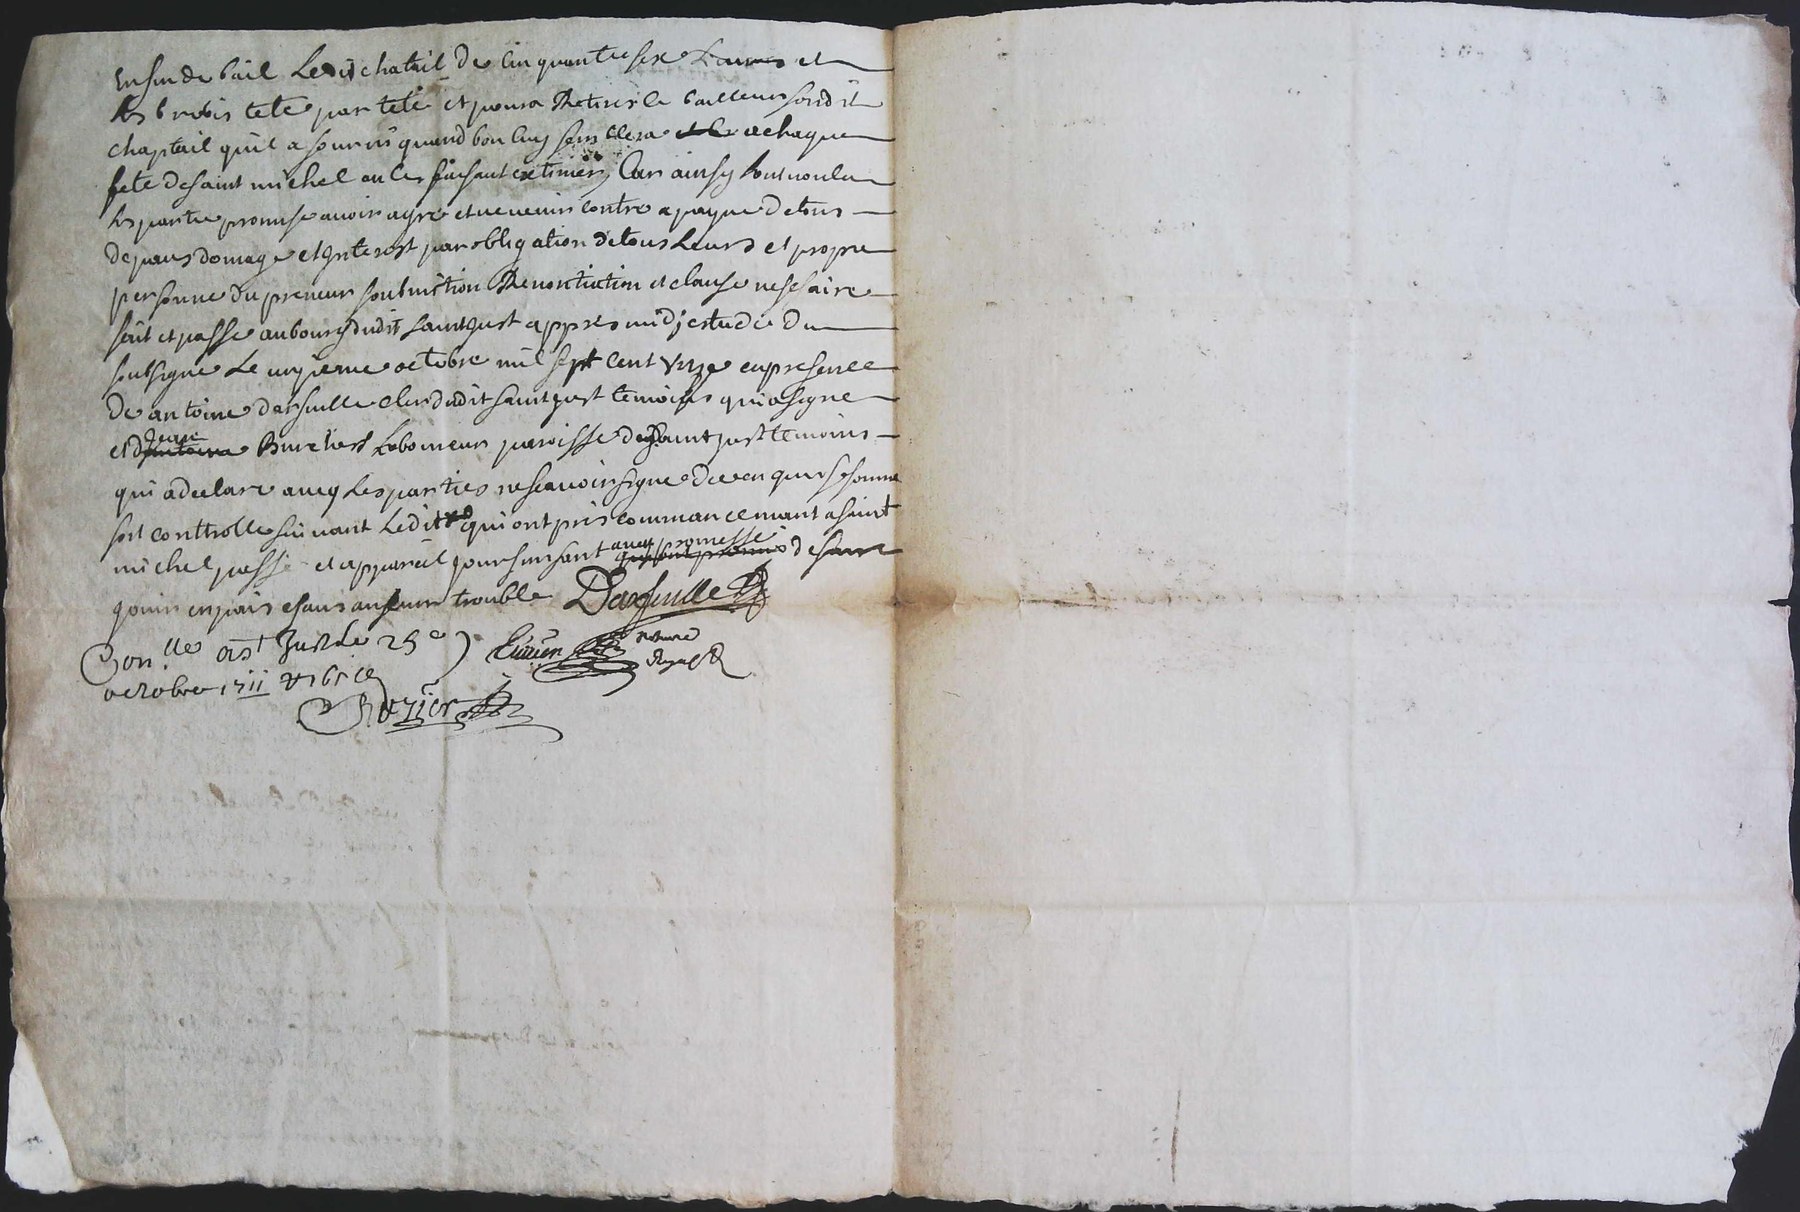 en fin de bail Ledit chatail de Cinquante six Livres et
les brebis tete par tete et poura Retirer le bailleur sondit
chaptail quil a fourni quand bon luy semblera a chaque
fete de saint michel en les faisant extimer Car ainsy lont voulu
les partie promise avoir agre et ne venir contre a payne de tous
depans domage et Interest par obligation de tous Leurs et propre
personne du preneur soubmition Renontiation et clause nessaire
fait et passe au bourg dudit saint Just appres midj estude du
soubsigne Le unzieme octobre mil sept cent unze en presence
de antoine dasfeuille clerc dudit saint just temoins qui a signe
et Jean Laboureur paroisse de saint just temoins
qui a declare avecq Les parties ne scavoir signe de ce enquis et somme
soit controlle suivant Ledit qui ont pris commancemant a saint
michel passé et a pareil jour finisant avec promesse de faire
jouir en paix et sans aucun trouble
Con.lle a St Just Le 25e
octobre 1711
Rozier notaire Royal